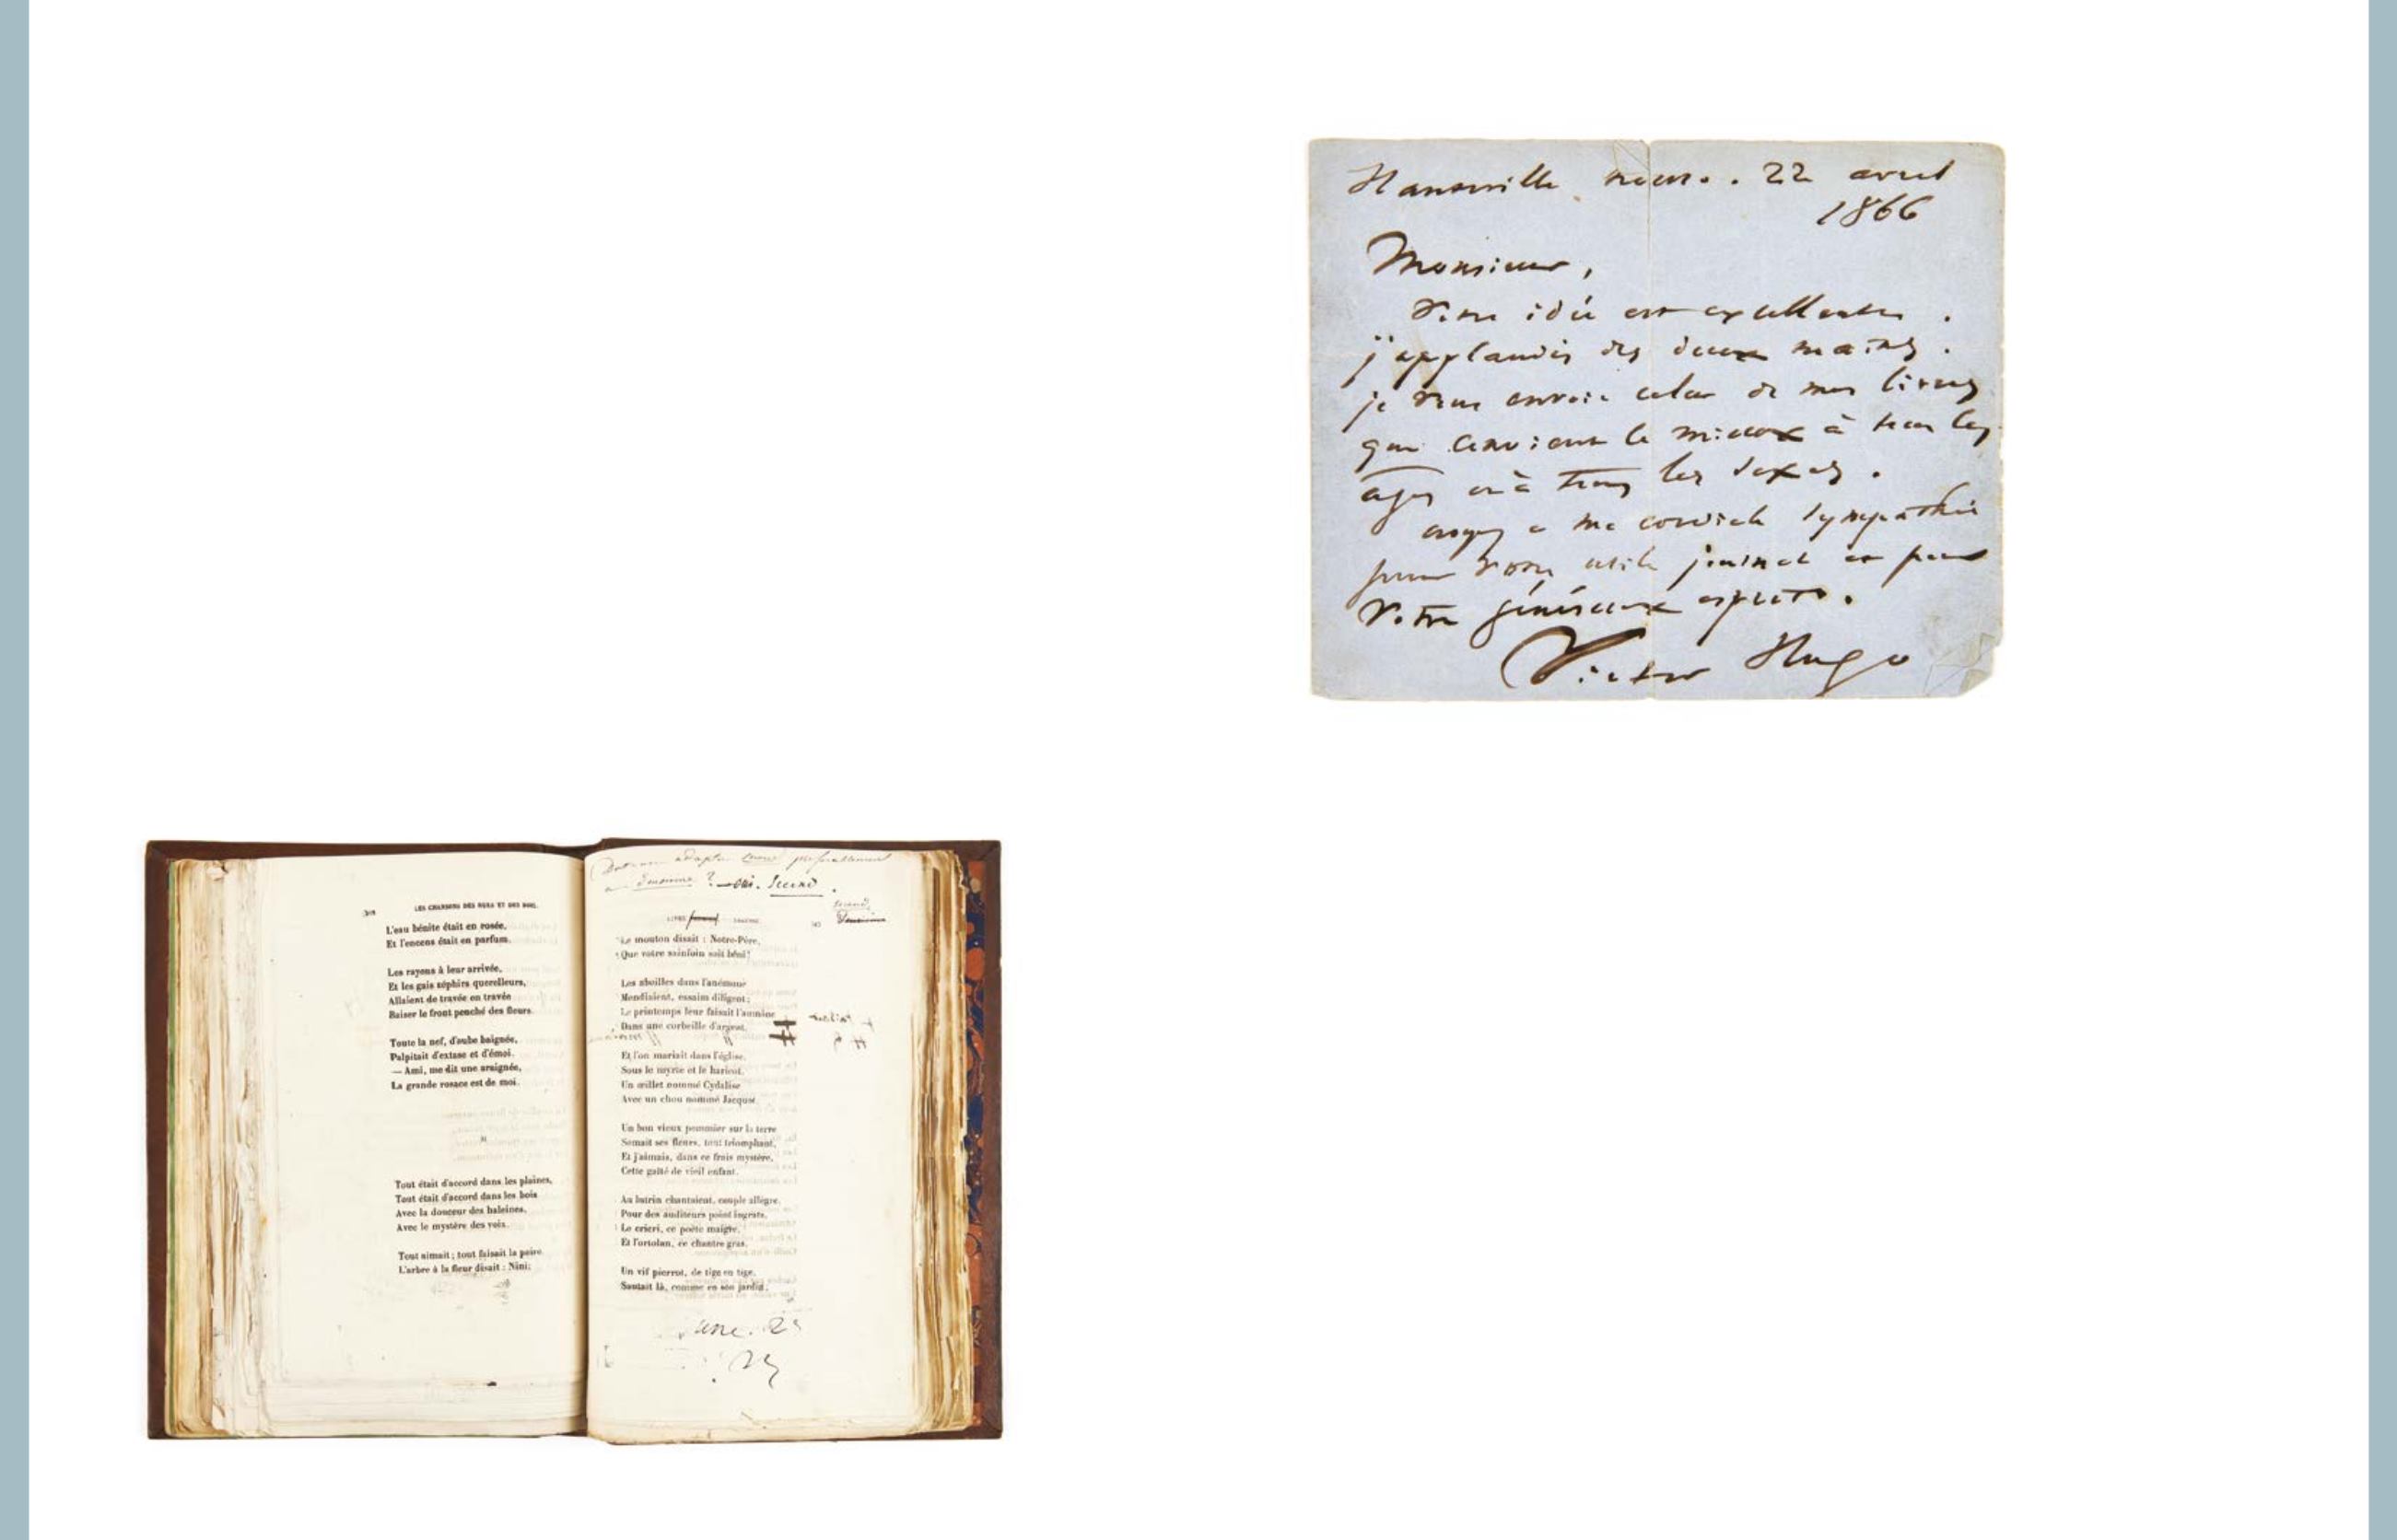 Hauteville house. 22 avril
1866
Monsieur,
Votre idée est excellente.
j'applaudis des deux mains.
je vous envoie celui de mes livres
qui convient le mieux à tous les
âges et à tous les sexes.
croyez à ma cordiale sympathie
pour votre utile journal et pour
votre généreux esprit.
Victor Hugo
LES CHANSONS DES RUES ET DES BOIS.
L'eau bénite était en rosée,
Et l'encens était en parfum.
Les rayons à leur arrivée,
Et les gais zéphirs querelleurs,
Allaient de travée en travée
Baiser le front penché des fleurs.
Toute la nef, d'aube baignée,
Palpitait d'extase et d'émoi.
— Ami, me dit une araignée,
La grande rosace est de moi.
II
Tout était d'accord dans les plaines,
Tout était d'accord dans les bois
Avec la douceur des haleines,
Avec le mystère des voix.
Tout aimait; tout faisait la paire.
L'arbre à la fleur disait : Nini;
adapter
? oui. Second.
LIVRE
Le mouton disait : Notre-Père,
Que votre sainfoin soit béni!
Les abeilles dans l'anémone
Mendiaient, essaim diligent;
Le printemps leur faisait l'aumône
Dans une corbeille d'argent.
Et l'on mariait dans l'église,
Sous le myrte et le haricot,
Un œillet nommé Cydalise
Avec un chou nommé Jacquot.
Un bon vieux pommier sur la terre
Semait ses fleurs, tout triomphant,
Et j'aimais, dans ce frais mystère,
Cette gaîté de vieil enfant.
Au lutrin chantaient, couple allègre,
Pour des auditeurs point ingrats,
Le cricri, ce poète maigre,
Et l'ortolan, ce chantre gras.
Un vif pierrot, de tige en tige,
Sautait là, comme en son jardin;